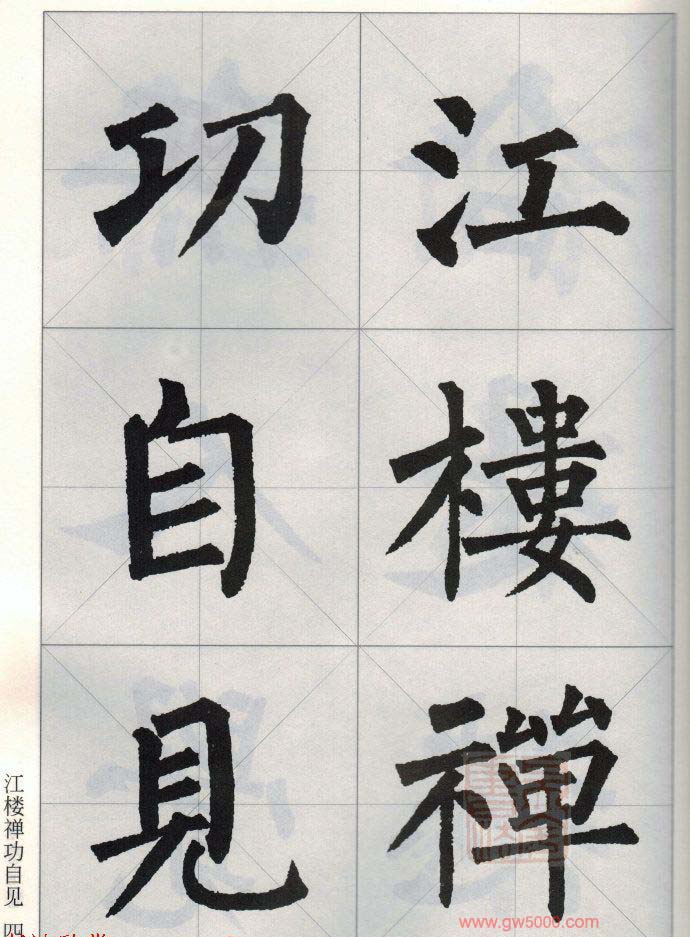 江樓禪
功自見
江楼禅功自见 四
www.gw5000.com